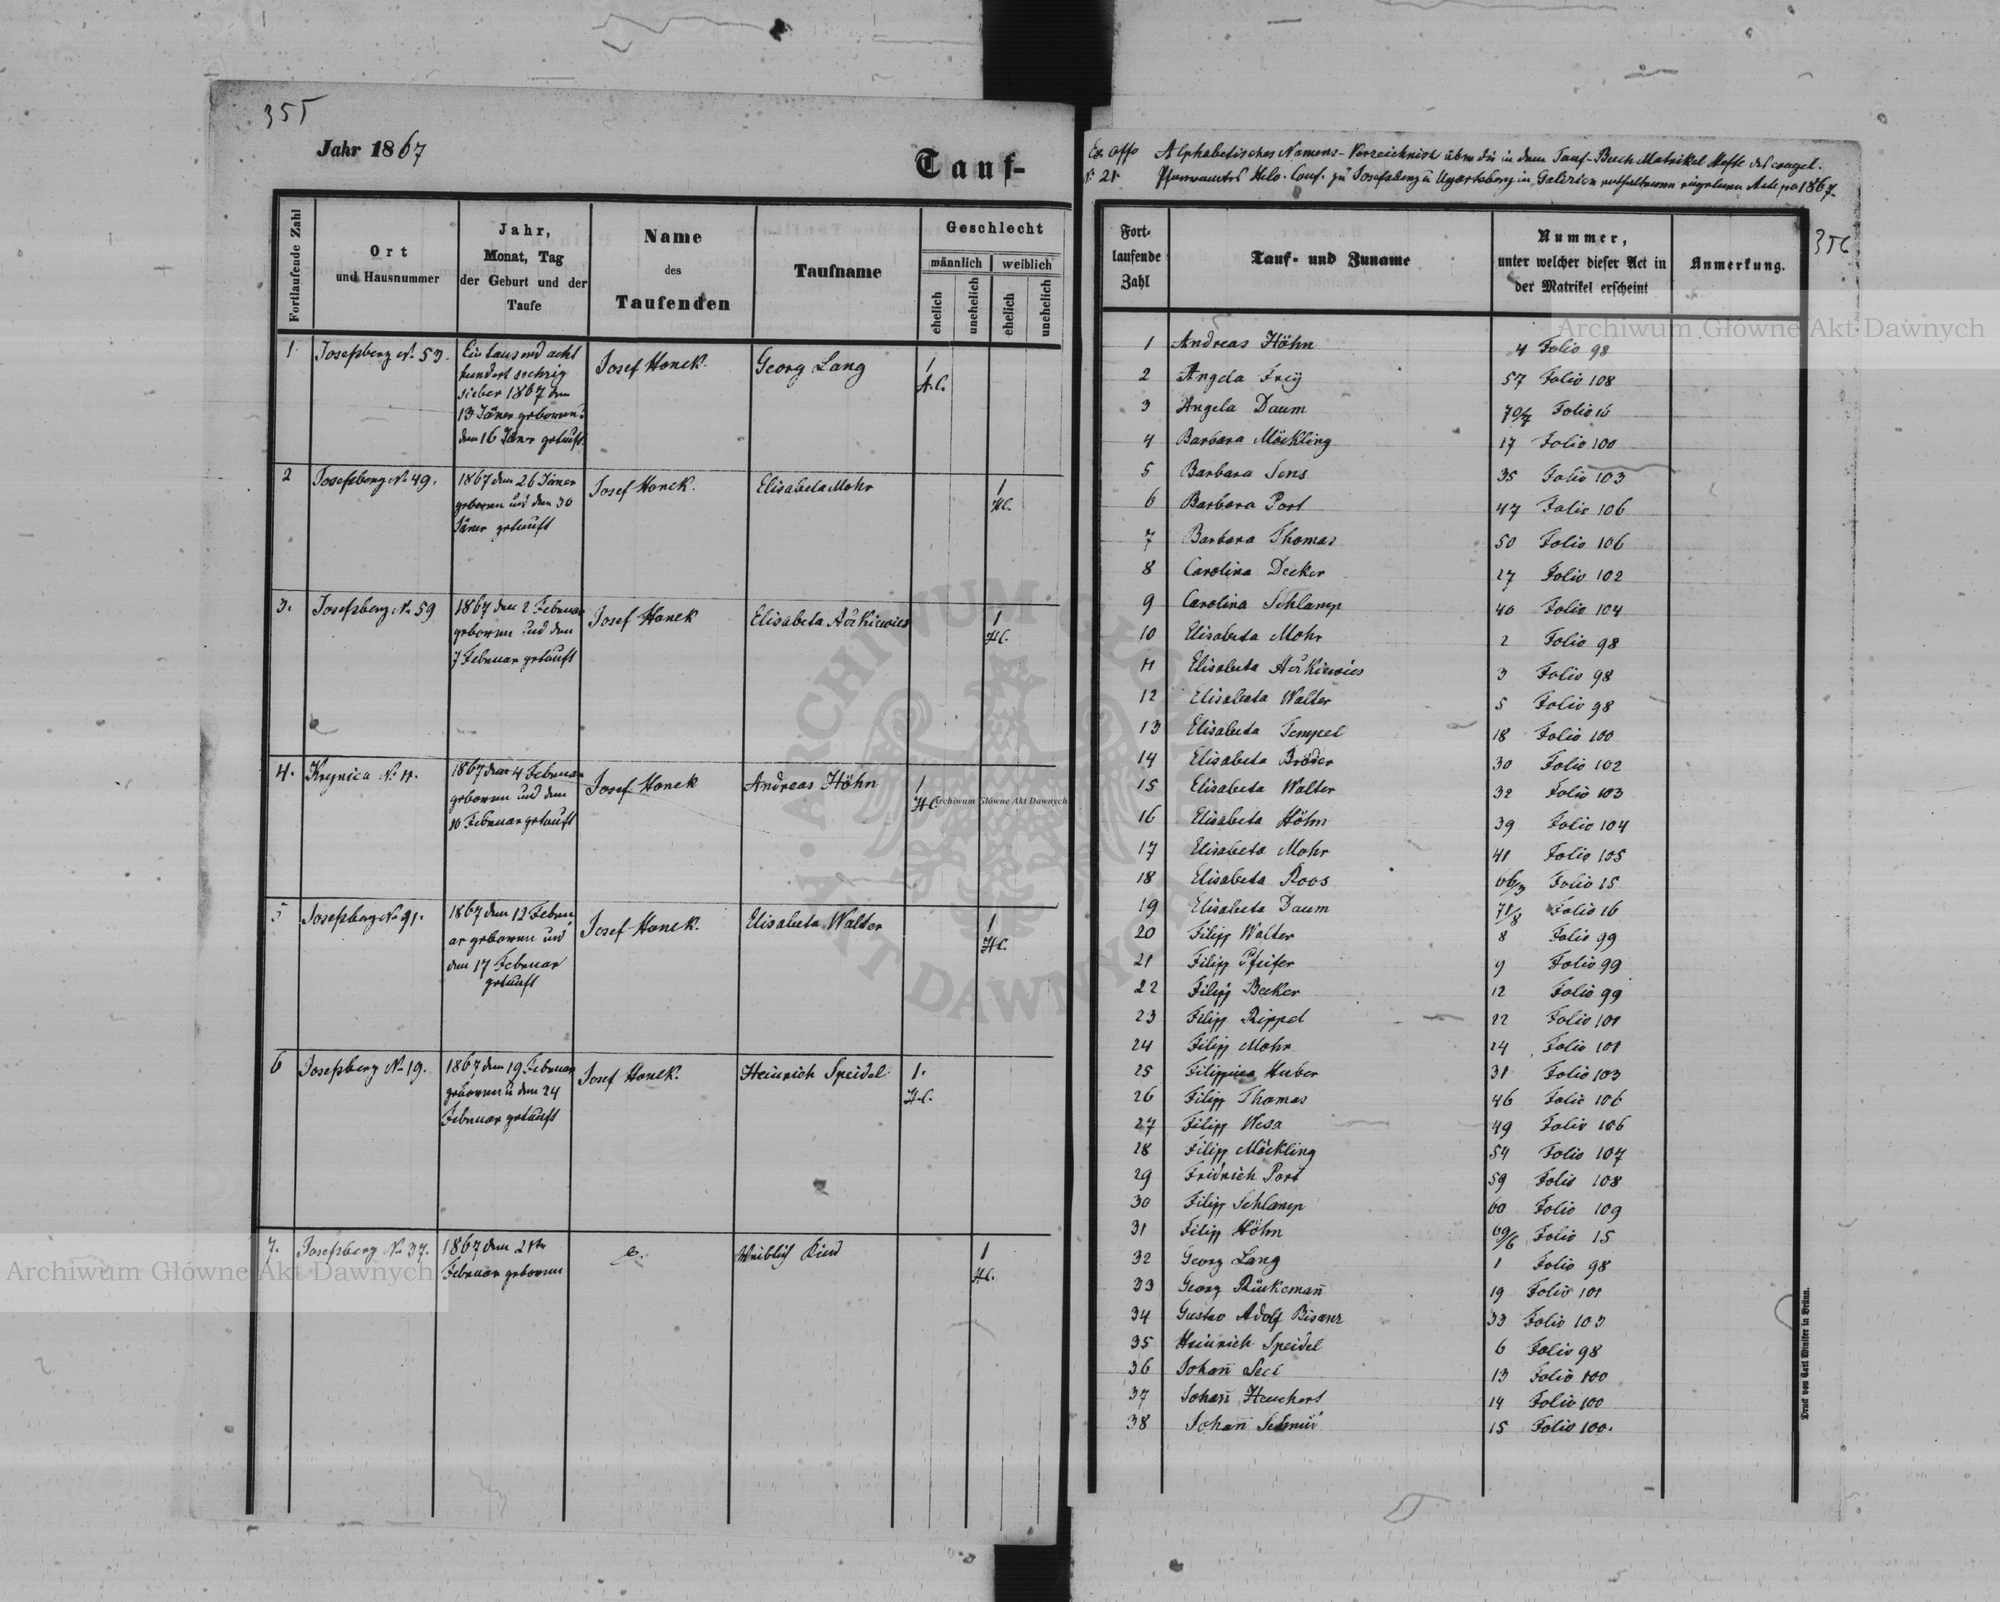 355
Jahr 1867
Tauf-
Fortlaufende Zahl
Ort
und Hausnummer
Jahr,
Monat, Tag
der Geburt und der
Taufe
Name
des
Taufenden
Taufname
Geschlecht
männlich
weiblich
ehelich
unehelich
ehelich
unehelich
1
Josefsberg No 53.
Ein tausend acht
hundert sechzig
sieben 1867 den
13 Jäner geboren
den 16 Jäner getauft
Josef Honek.
Georg Lang
1
H.C.
2
Josefsberg No 49.
1867 den 26 Jäner
geboren und den 30
Jäner getauft
Josef Honek.
Elisabeta Mohr
1
H.C.
3.
Josefsberg No 59
1867 den 2 Februar
geboren und den
7 Februar getauft
Josef Honek
Elisabeta
1
H.C.
4.
Krynica No 11.
1867 den 4 Februar
geboren und den
10 Februar getauft
Josef Honek
Andreas Höhn
1
H.C.
Archiwum Główne Akt Dawnych
5
Josefsberg No 91.
1867 den 12 Febru
ar geboren und
den 17 Februar
getauft
Josef Honek.
Elisabeta Walter
1
H.C.
6
Josefsberg No 19.
1867 den 19 Februar
geboren u den 24
Februar getauft
Josef Honek.
Heinrich Speidel
1.
H.C.
7.
Josefsberg No 37.
1867 den 21ten
Februar geboren
Weiblich Kind
1
H.C.
Archiwum Główne Akt Dawnych
Ex offo Alphabetisches Namens-Verzeichniss über die in dem Tauf-Buch Matrikel Hefte des evangel.
No 21. Pfarramtes Helv. Conf. zu Josefsberg u Ugartsberg in Galizien enthaltenen Acte pro 1867.
356
Fort-
laufende
Zahl
Tauf- und Zuname
Nummer,
unter welcher dieser Act in
der Matrikel erscheint
Anmerkung.
Archiwum Główne Akt Dawnych
1 Andreas Höhn 4 Folio 98
2 Angela Frey 57 Folio 108
3 Angela Daum 70/7 Folio 16
4 Barbara Möckling 17 Folio 100
5 Barbara Sens 35 Folio 103
6 Barbara Port 47 Folio 106
7 Barbara Thomas 50 Folio 106
8 Carolina Decker 27 Folio 102
9 Carolina Schlamp 40 Folio 104
10 Elisabeta Mohr 2 Folio 98
11 Elisabeta 3 Folio 98
12 Elisabeta Walter 5 Folio 98
13 Elisabeta Tempel 18 Folio 100
14 Elisabeta Bröder 30 Folio 102
15 Elisabeta Walter 32 Folio 103
16 Elisabeta Höhn 39 Folio 104
17 Elisabeta Mohr 41 Folio 105
18 Elisabeta Roos 66/3 Folio 15
19 Elisabeta Daum 71/8 Folio 16
20 Filipp Walter 8 Folio 99
21 Filipp Pfeifer 9 Folio 99
22 Filipp Becker 12 Folio 99
23 Filipp Rippel 22 Folio 101
24 Filipp Mohr 24 Folio 101
25 Filippina Huber 31 Folio 103
26 Filipp Thomas 46 Folio 106
27 Filipp Wesa 49 Folio 106
28 Filipp Möckling 54 Folio 107
29 Fridrich Port 59 Folio 108
30 Filipp Schlamp 60 Folio 109
31 Filipp Höhn 69/6 Folio 15
32 Georg Lang 1 Folio 98
33 Georg Rückemañ 19 Folio 101
34 Gustav Adolf Bisanz 33 Folio 103
35 Heinrich Speidel 6 Folio 98
36 Johañ 13 Folio 100
37 Johañ Heuchert 14 Folio 100
38 Johañ 15 Folio 100.
Druck von Carl Winiker in Brünn.
ARCHIWUM GŁÓWNE AKT DAWNYCH